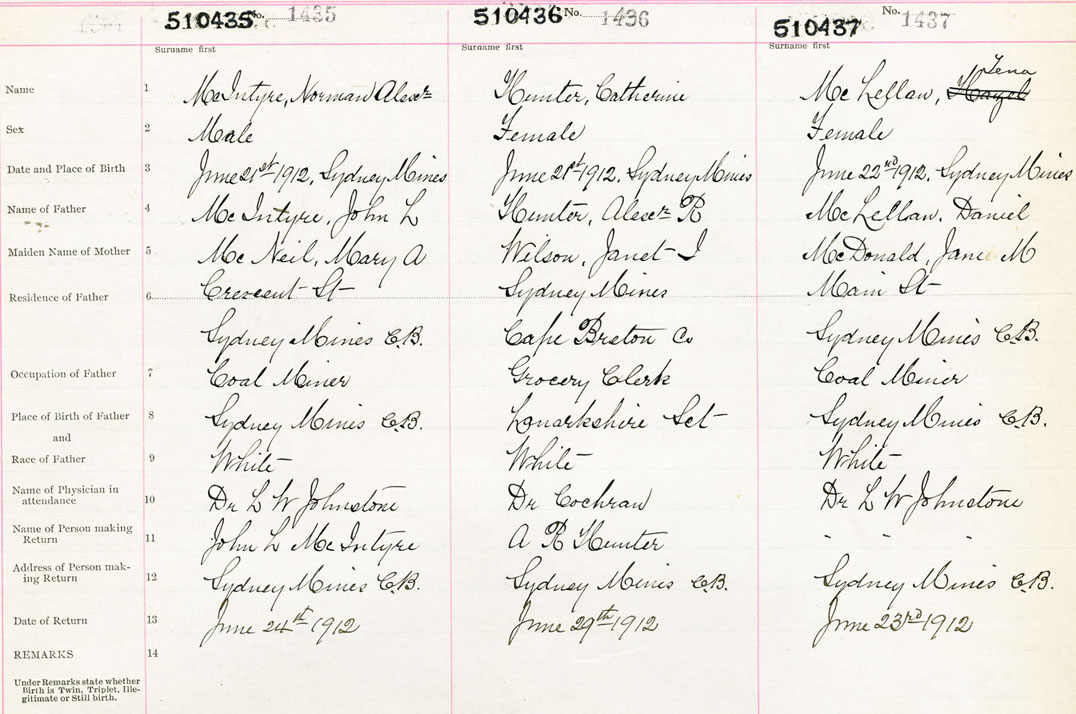 510435 No. 1435
510436 No. 1436
510437 No. 1437
Surname first Surname first Surname first
Name 1 McIntyre, Norman Alexr Hunter, Catherine McLellan, Hazel Tena
Sex 2 Male Female Female
Date and Place of Birth 3 June 21st 1912, Sydney Mines June 21st 1912, Sydney Mines June 22nd 1912, Sydney Mines
Name of Father 4 McIntyre, John L Hunter, Alexr R McLellan, Daniel
Maiden Name of Mother 5 McNeil, Mary A Wilson, Janet I McDonald, Jane M
Residence of Father 6 Crescent St Sydney Mines Main St
Sydney Mines C.B. Cape Breton Co Sydney Mines C.B.
Occupation of Father 7 Coal Miner Grocery Clerk Coal Miner
Place of Birth of Father 8 Sydney Mines C.B. Lanarkshire Sct Sydney Mines C.B.
and
Race of Father 9 White White White
Name of Physician in
attendance 10 Dr L W Johnstone Dr Cochran Dr L W Johnstone
Name of Person making
Return 11 John L McIntyre A R Hunter " " "
Address of Person mak-
ing Return 12 Sydney Mines C.B. Sydney Mines C.B. Sydney Mines C.B.
Date of Return 13 June 24th 1912 June 29th 1912 June 23rd 1912
REMARKS 14
Under Remarks state whether
Birth is Twin, Triplet, Ille-
gitimate or Still birth.